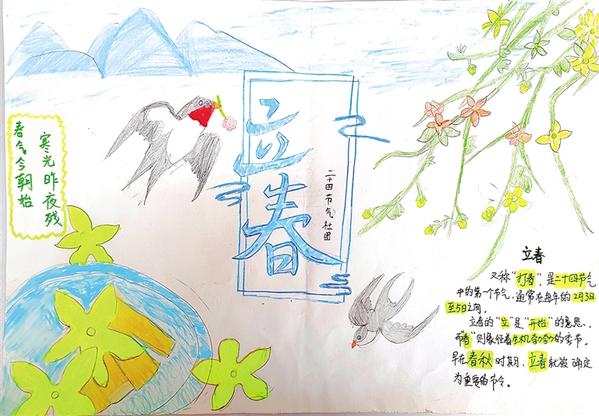 寒光昨夜残
春气今朝始
立春
二十四节气社团
立春
又称"打春",是二十四节气
中的第一个节气,通常在每年的2月3日
至5日之间。
立春的"立"是"开始"的意思,
而"春"则象征着生机勃勃的季节。
早在春秋时期,立春就被确定
为重要的节令。